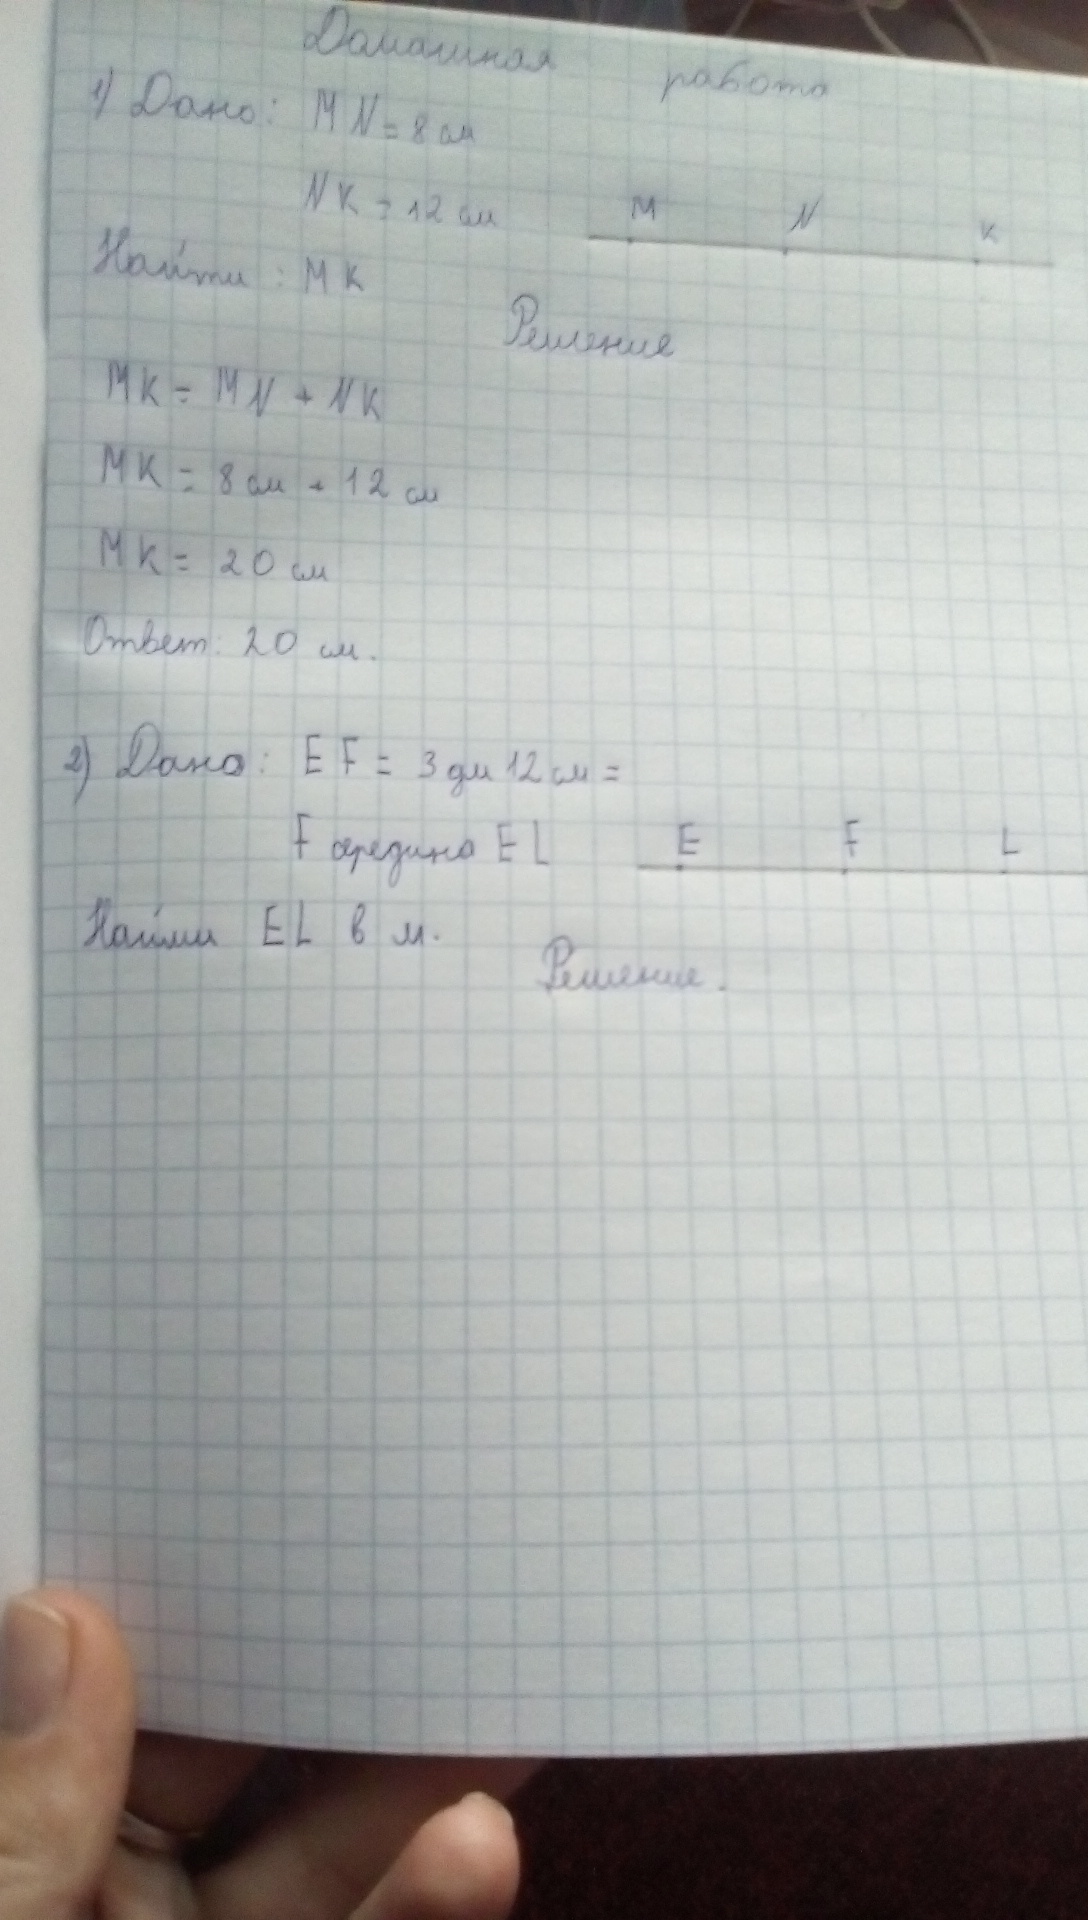 Домашняя работа
1) Дано: MN = 8 см
NK = 12 см
M N K
Найти: MK
Решение
MK = MN + NK
MK = 8 см + 12 см
MK = 20 см
Ответ: 20 см.
2) Дано: EF = 3 дм 12 см =
F середина EL
E F L
Найти EL в м.
Решение.